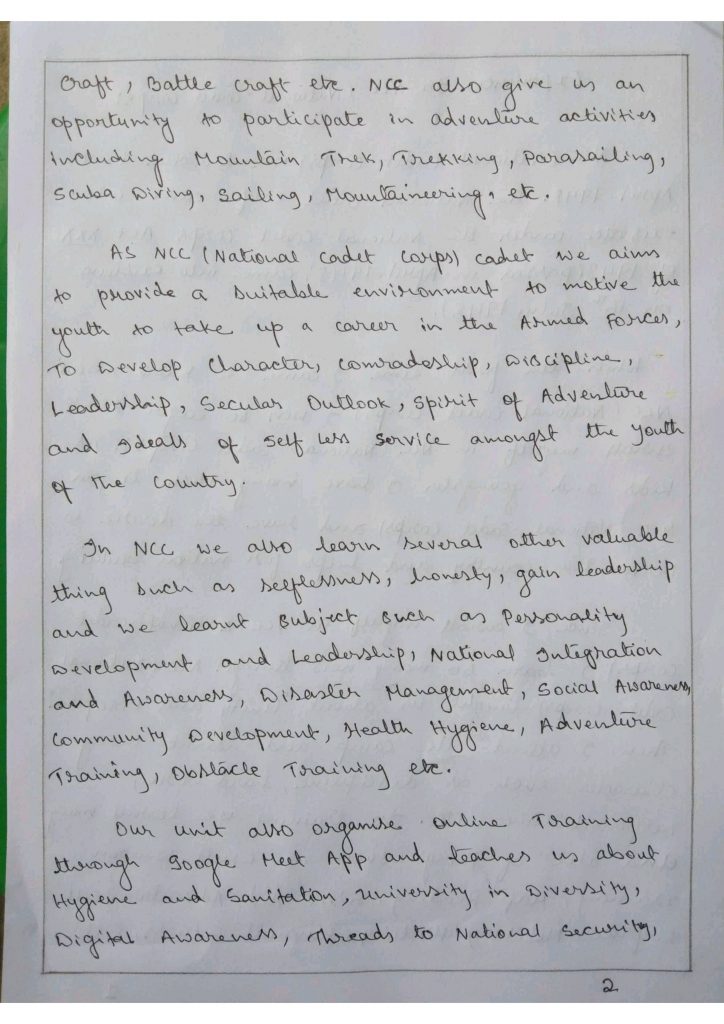 Craft, Battle craft etc. NCC also give us an
opportunity to participate in adventure activities
including Mountain Trek, Trekking, Parasailing,
Scuba Diving, Sailing, Mountaineering, etc.
As NCC (National Cadet Corps) cadet we aims
to provide a suitable environment to motive the
youth to take up a career in the Armed Forces,
To Develop Character, Comradeship, Discipline,
Leadership, Secular Outlook, Spirit of Adventure
and Ideals of Self less Service amongst the youth
of the country.
In NCC we also learn several other valuable
thing such as selflessness, honesty, gain leadership
and we learnt subject such as Personality
Development and Leadership, National Integration
and Awareness, Disaster Management, Social Awareness,
Community Development, Health Hygiene, Adventure
Training, Obstacle Training etc.
Our unit also organise online Training
through Google Meet App and teaches us about
Hygiene and Sanitation, University in Diversity,
Digital Awareness, Threads to National Security,
2